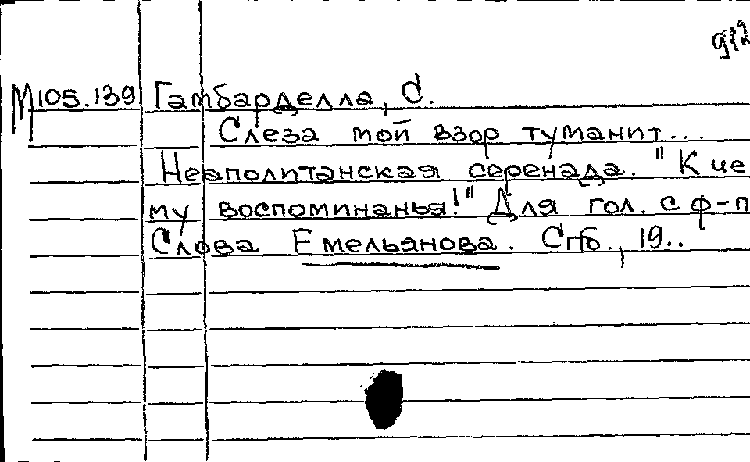 М105.139 Гамбарделла, С.
Слеза мой взор туманит...
Неаполитанская серенада. "К че
му воспоминанья!" Для гол. с ф-п
Слова Емельянова. Спб., 19..